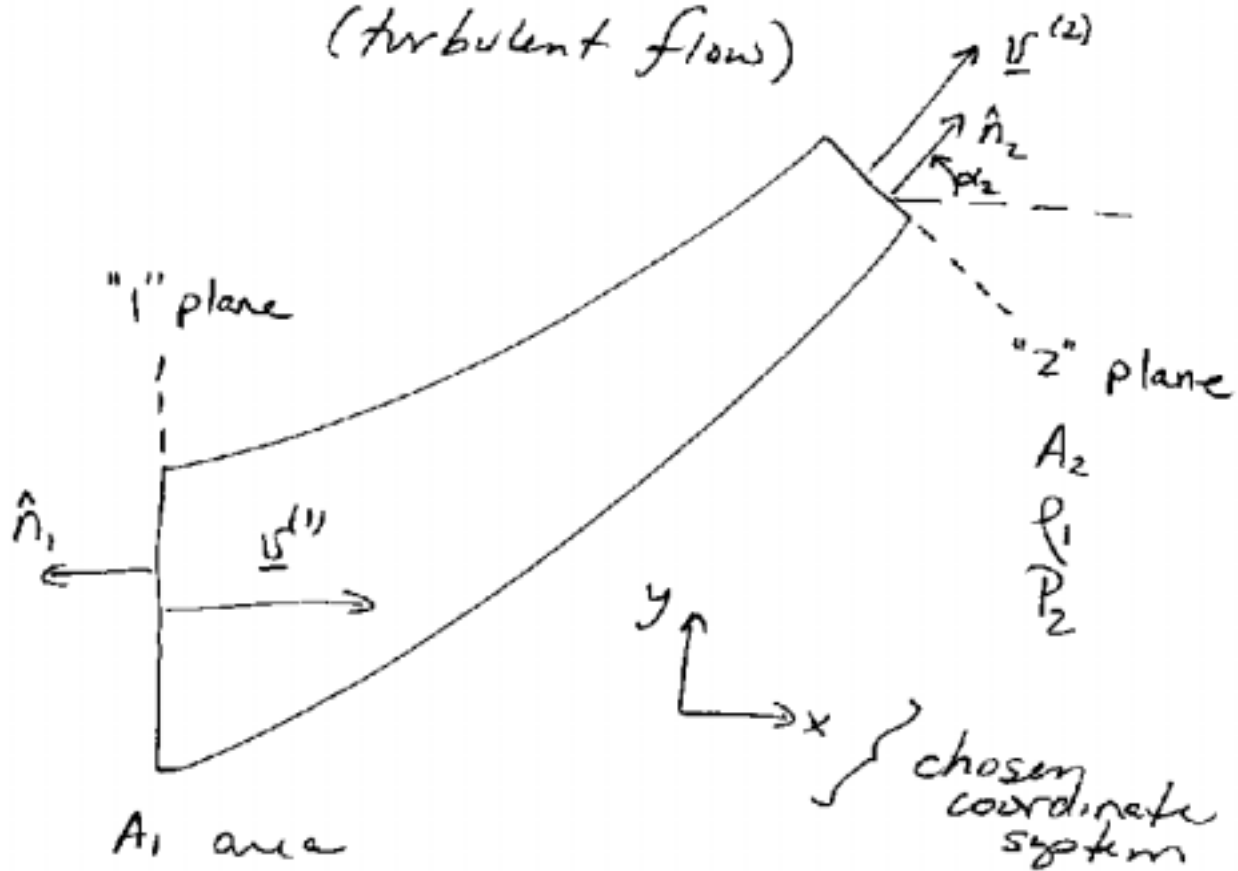 (turbulent flow)
v⁽²⁾
n̂₂
α₂
"1" plane
"2" plane
A₂
ρ₁
P₂
n̂₁
v⁽¹⁾
y
x
} chosen
coordinate
system
A₁ area